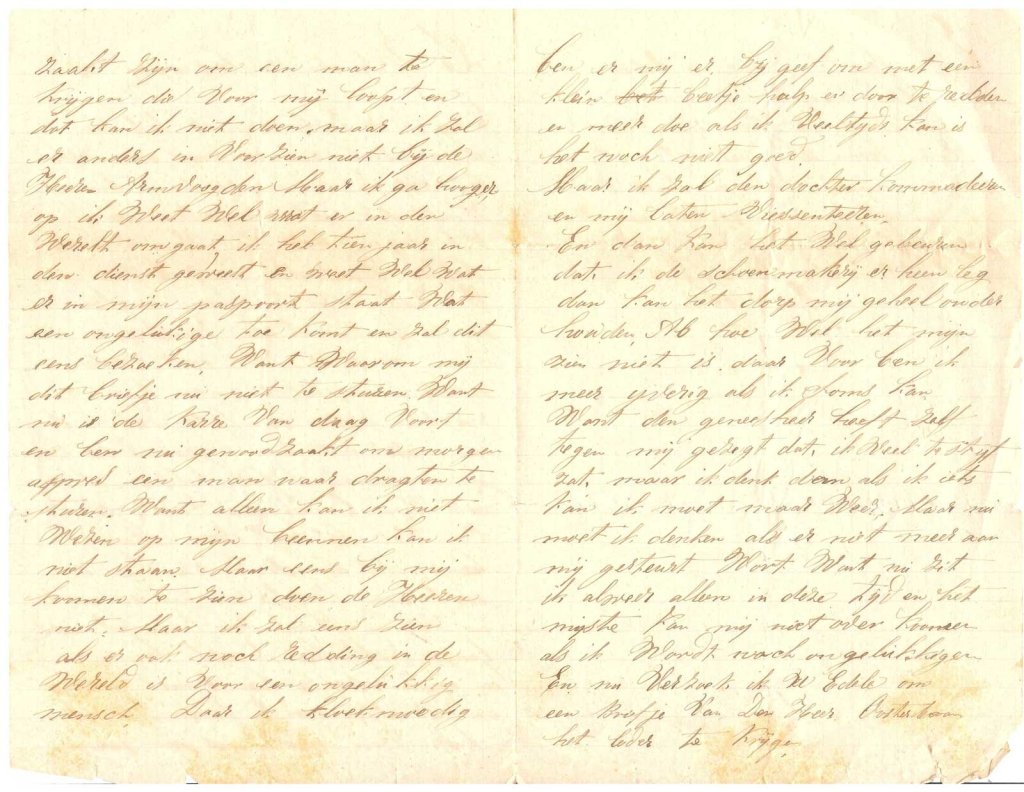 zaakt zijn om een man te
krijgen die voor mij loopt en
dat kan ik niet doen. maar ik zal
er anders in Voorzien niet bij de
Heeren Armvoogden Maar ik ga hooger,
op ik Weet Wel wat er in den
Werelt omgaat ik heb tien jaar in
den dienst geweest en weet Wel wat
er in mijn paspoort staat Wat
een ongelukige toe komt en zal dit
eens bezoeken, Want Waarom mij
dit briefje nu niet te stuuren Want
nu is de Karre Van daag Voort
en ben nu genoodzaakt om morgen
een man naar dragten te
stuuren. Want alleen kan ik niet
Wezen op mijn beennen kan ik
niet staan. Maar eens bij mij
koomen te zien doen de Heeren
niet. Maar ik zal eens zien
als er ook noch redding in de
Wereld is Voor een ongelukkig
mensch Daar ik kloekmoedig
ben er mij er bij geef om met een
klein beetje hulp er door te
en meer doe als ik Veeltijds kan is
het noch niet goed.
Maar ik zal den dochter kommadeeren
en mij laten Viesenteeren,
En dan kan het Wel gebeuren
dat ik de schoenmakerij er heen leg
dan kan het dorp mij geheel onder
houden, Al hoe Wel het mijn
zin niet is. daar Voor ben ik
meer ijverig als ik soms kan
Want den geneesheer heeft zelf
tegen mij gezegt dat ik Veel te stijf
zat. maar ik denk dan als ik iets
kan ik moet maar Weer, Maar nu
moet ik denken als er niet meer aan
mij gesteurt Wort Want nu zit
ik alweer alleen in deze tijd en het
kan mij niet over koomen
als ik Wordt noch ongelukkigen
En nu Verzoek ik U Edele om
een briefje Van Den Heer
het leder te krijge,